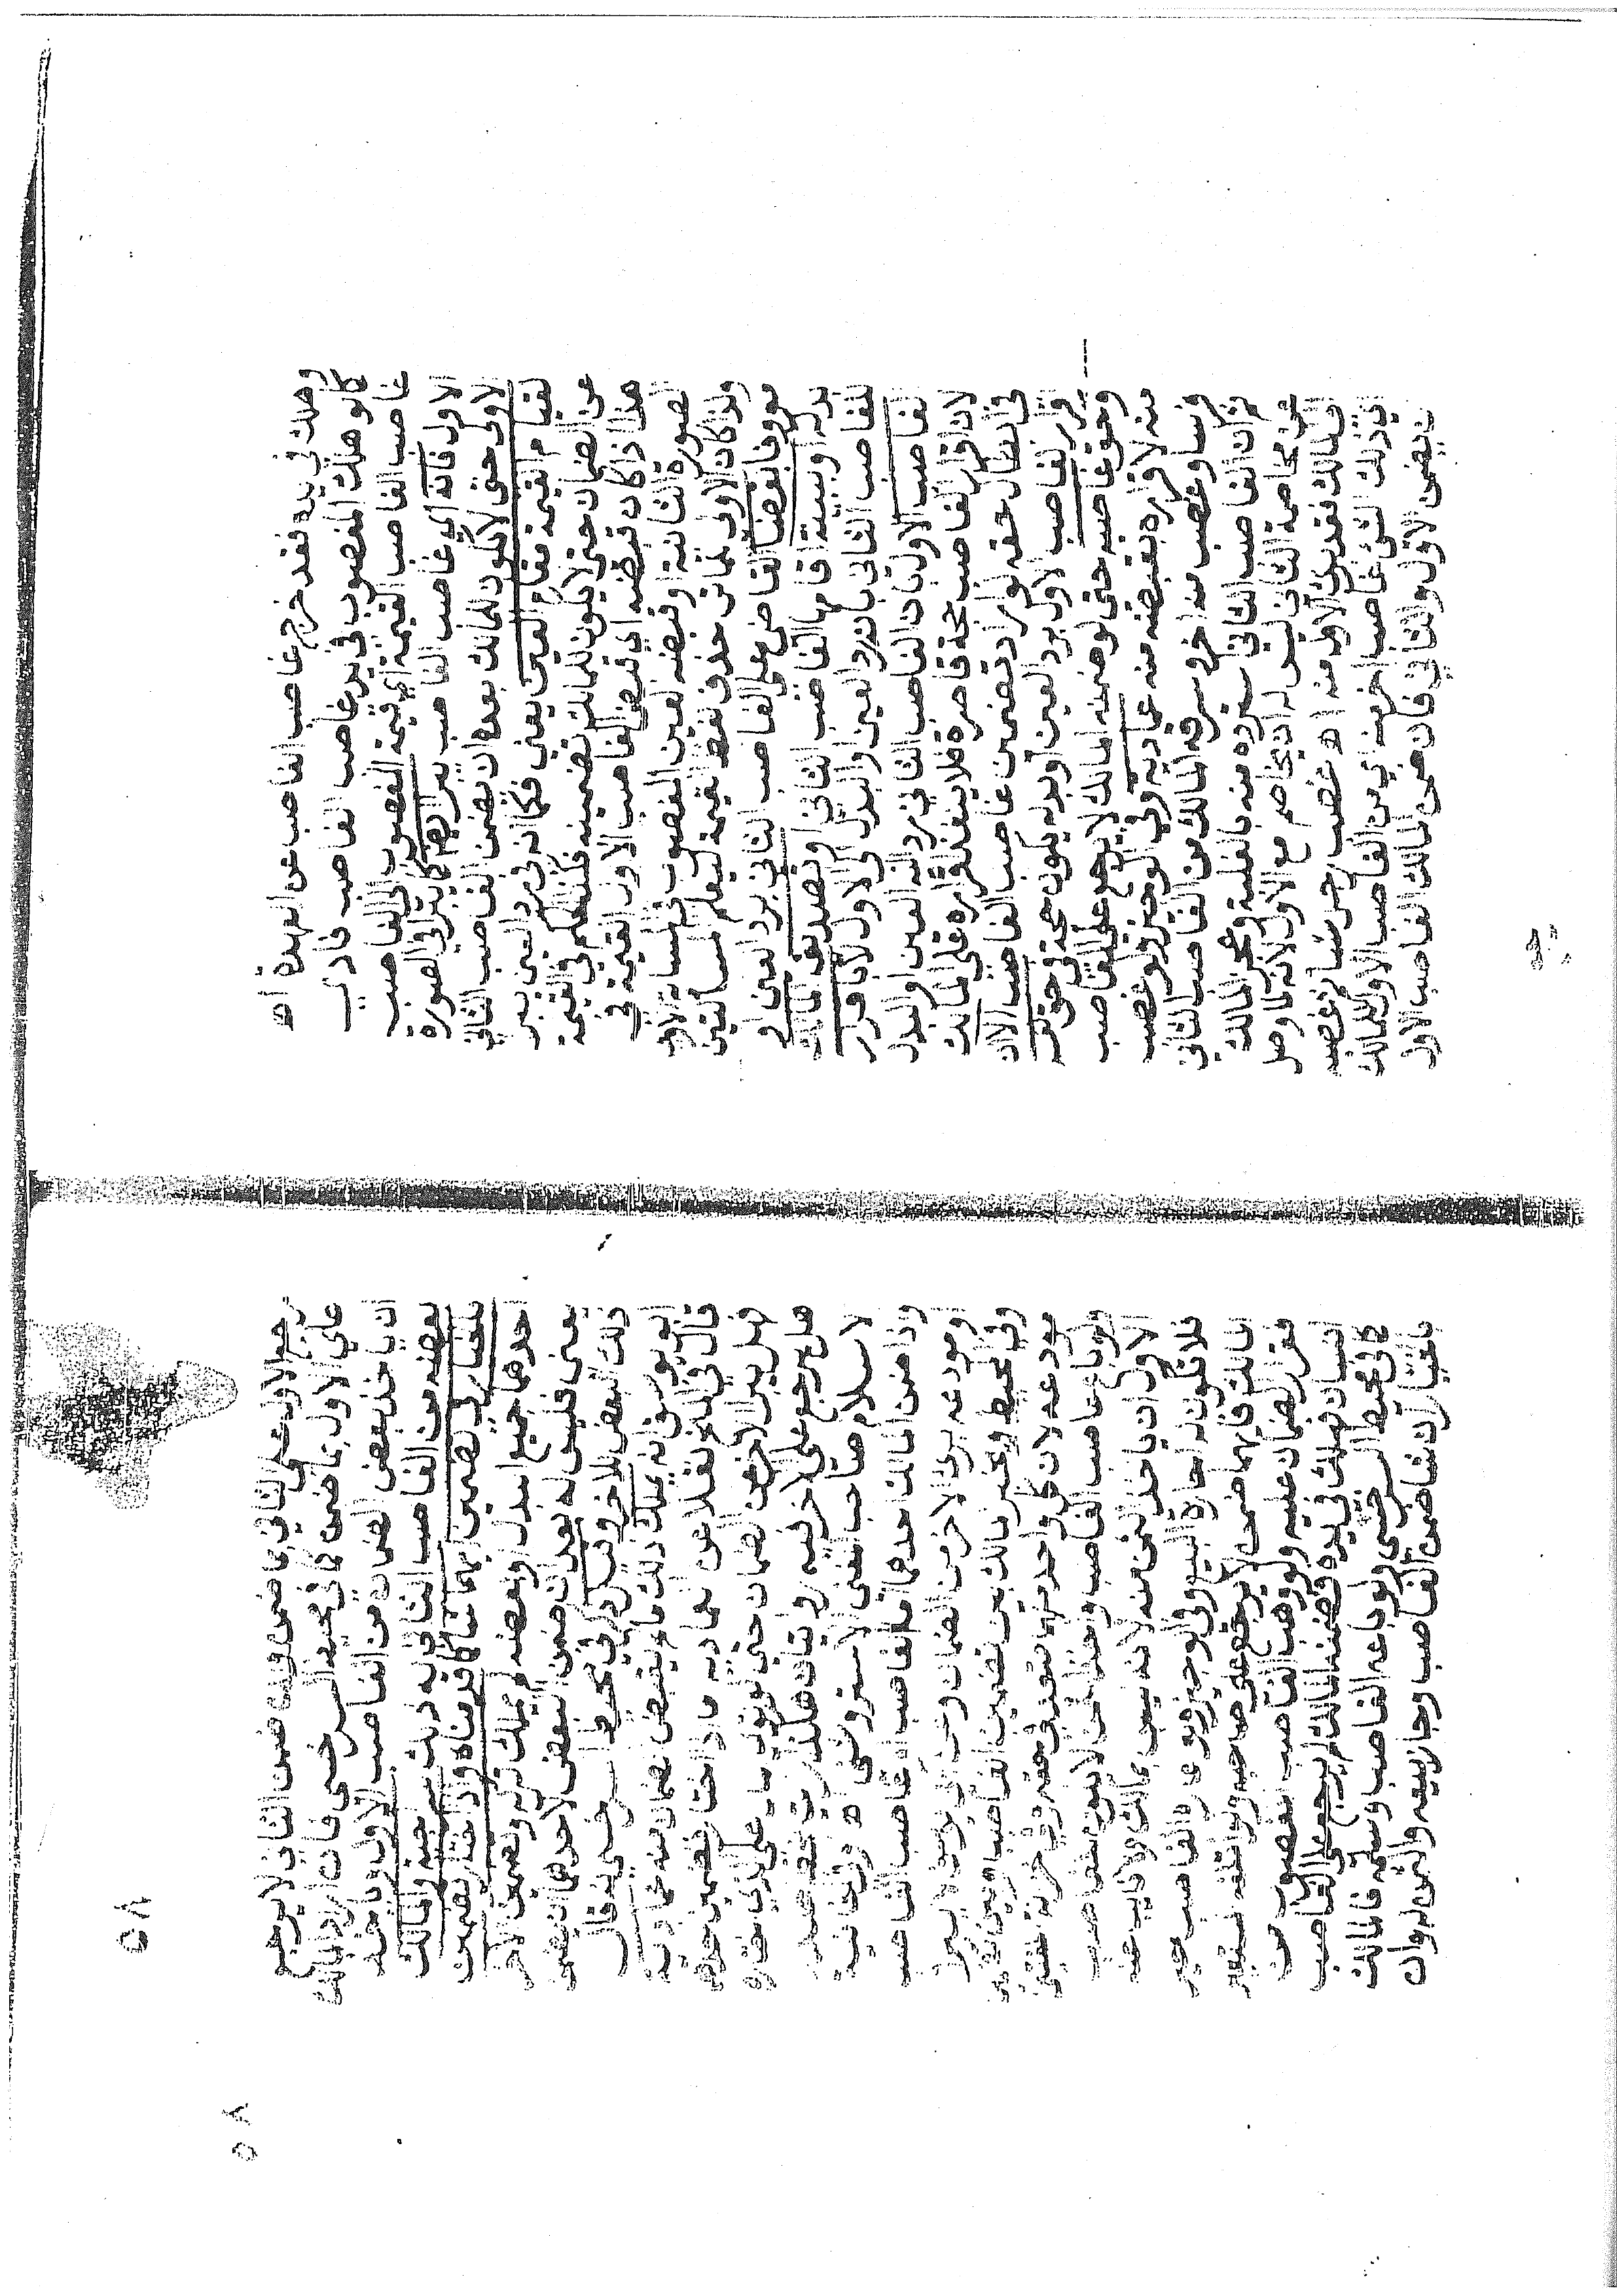 وهلك في يده فقد خرج غاصب الغاصب عن العهدة اه
كالو هلك المغصوب في يد غاصب الغاصب فادى
غاصب الغاصب القيمة اي قيمة المغصوب الى الغاصب
الاول فانه اي غاصب الغاصب يبرا ايضا كما يبرا في الصورة
الاولى حتى لا يكون للمالك بعده ان يضمن الغاصب الثاني
لقيام القيمة مقام العين يعني فكما انه في رد العين يبرا
عن الضمان حتى لا يكون للمالك تضمينه فكذا الحكم في القيمة
هذا اذا كان قبضه اي قبض الغاصب الاول القيمة في
الصورة الثانية او قبضه العين المغصوب في المسالة الاولى
وان كان الاولى حذف لفظ القيمة ليعلم المسالتين
معروفا بقضاء القاضي على الغاصب الثاني برد العين او
بدله او ببينة اقامها الغاصب الثاني او تصديق المالك
للغاصب الثاني بانه رد العين او البدل الى الاول لا باقرار
الغاصب الاول بان الغاصب الثاني رد اليه العين او البدل
لان اقرار الغاصب حجة قاصرة فلا ينفذ اقراره على المالك
في انتقال حقه لو اراد تضمين غاصب الغاصب الا ان
اقرار الغاصب الاول برد العين او بدله يكون حجة في حق نفسه
وحق غاصبه حتى لو ضمنه المالك لا يرجع على الغاصب
منه لاقراره بقبضه منه عمادية وفي الوجيز ولو غصب
فرسا وغصب منه اخر وسرقه المالك من الغاصب الثاني
ثم ان الغاصب الثاني استرده منه بالغلبة وعجز المالك
عن مخاصمة الثاني ليس له ان يخاصم مع الاول لانه لما وصل
الى المالك فقد برئ الاول منه اه غصب رجل شيا ثم غصبه
اي ذلك الشئ غاصب اخر منه اي من الغاصب الاول للمالك
ان يضمن الاول والثاني فان ضمن المالك الغاصب الاول
٥٨
يرجع الاول على الثاني بما ضمن وان ضمن الثاني لا يرجع
على الاول بما ضمن كما في محيط السرخسي فان اراد المالك
ان ياخذ بعض الضمان من الغاصب الاول وياخذ
بعضه من الغاصب الثاني له ذلك سراجية والمالك
بالخيار في تضمين ايهما شا كما قدمناه واذا اختار تضمين
احدهما جميع البدل او بعضه لم يملك تركه وتضمين الاخر
يعني فليس له بعد ان ضمن البعض لاحدهما ان يضمن
ذلك البعض للاخر وقيل وفي محيط السرخسي انه قال
ابو يوسف انه يملك ذلك ما لم يقبض الضمان منه عمادية
قال في المنح نقلا عن العمادية ما اذا اختار تضمين احدهما
فهل يبرا الاخر عن الضمان حتى لو توى المال على الذي اختاره
هل يرجع على الاخر فيه روايتان هكذا رايت بخط جدي
لاسلام صاحب المغني الاستروشني اه وفي الخانية
واذا ضمن المالك احدهما اما الغاصب او غاصب الغاصب
او مودعه برئ الاخر من الضمان وعند ابي يوسف لا يبرا
وفي المحيط وخير المالك بين تضمين الغاصب وبين تضمين
مودعه لان كل واحد منهما متعد في حقه وفي خزانة المفتين
ولو باع غاصب الغاصب واخذ الثمن لا يكون للغاصب
الاول ان ياخذ الثمن منه لانه ليس بمالك ولا نائب عنه
فلا تكون له اجازة البيع وفي الوجيز ولو اعاره الغاصب خير
المالك فايهما ضمن لا يرجع على صاحبه ولو اتلفه المستعير
فقرار الضمان عليه ولو وهب الغاصب المغصوب من
انسان فهلك في يده فضمنه المالك لم يرجع على الغاصب
كما في محيط السرخسي ولو باعه الغاصب وسلمه فالمالك
بالخيار ان شا ضمن الغاصب وجاز بيعه والثمن له وان
٥٨